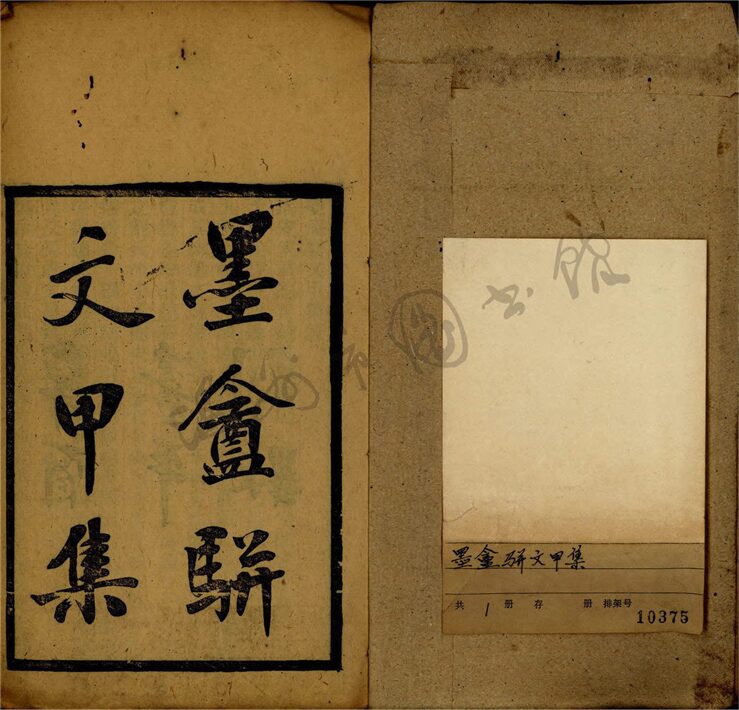 墨盦駢
文甲集
墨盦駢文甲集
共 1 册 存 册 排架号 10375